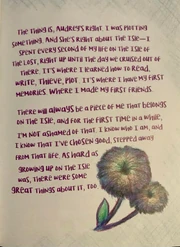 The thing is, Audrey's right. I was plotting
something. And she's right about the Isle—I
spent every second of my life on the Isle of
the Lost, right up until the day we cruised out of
there. It's where I learned how to read,
write, thieve, plot. It's where I have my first
memories. Where I made my first friends.
There will always be a piece of me that belongs
on the Isle, and for the first time in a while,
I'm not ashamed of that. I know who I am, and
I know that I've chosen good, stepped away
from that life. As hard as
growing up on the Isle
was, there were some
great things about it, too.